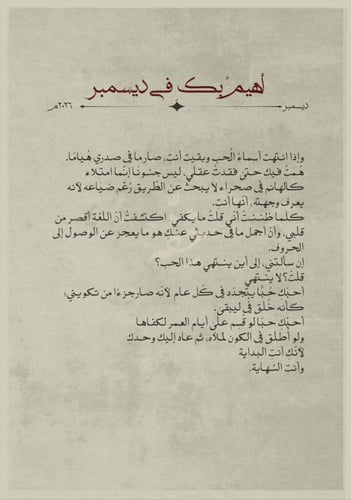 أهيمُ بِك في ديسمبر
ديسمبر ٢٠٢٦م
وإذا انتهت أسماءُ الحُب وبقيت أنتِ، صار ما في صدري هُيامًا.
هُمتُ فيك حتى فقدتُ عقلي، ليس جنونًا إنما امتلاء
كالهائم في صحراء لا يبحثُ عن الطريق رُغم ضياعه لأنه
يعرف وجهتهُ، أنها أنتِ.
كلما ظننتُ أني قلتُ ما يكفي، اكتشفتُ أن اللغة أقصر من
قلبي، وأنَ أجمل ما في حديثي عنكِ هو ما يعجز عن الوصول إلى
الحروف.
إن سألتني، إلى أين ينتهي هذا الحب؟
قلتُ؟ لا ينتهي
أحبكِ حُبًا يتجدَد في كُل عام لأنَه صار جزءًا من تكويني؛
كأنه خُلق فيَ ليبقى.
أحبكِ حبا لو قسم على أيام العمر لكفاها
ولو أطلق في الكون لملأه، ثم عاد إليك وحدك
لأنك أنتِ البداية
وأنتِ النهاية.